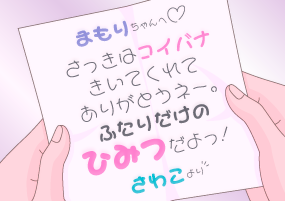 まもりちゃんへ♡
さっきはコイバナ
きいてくれて
ありがとうネー。
ふたりだけの
ひみつだよっ!
さわこより